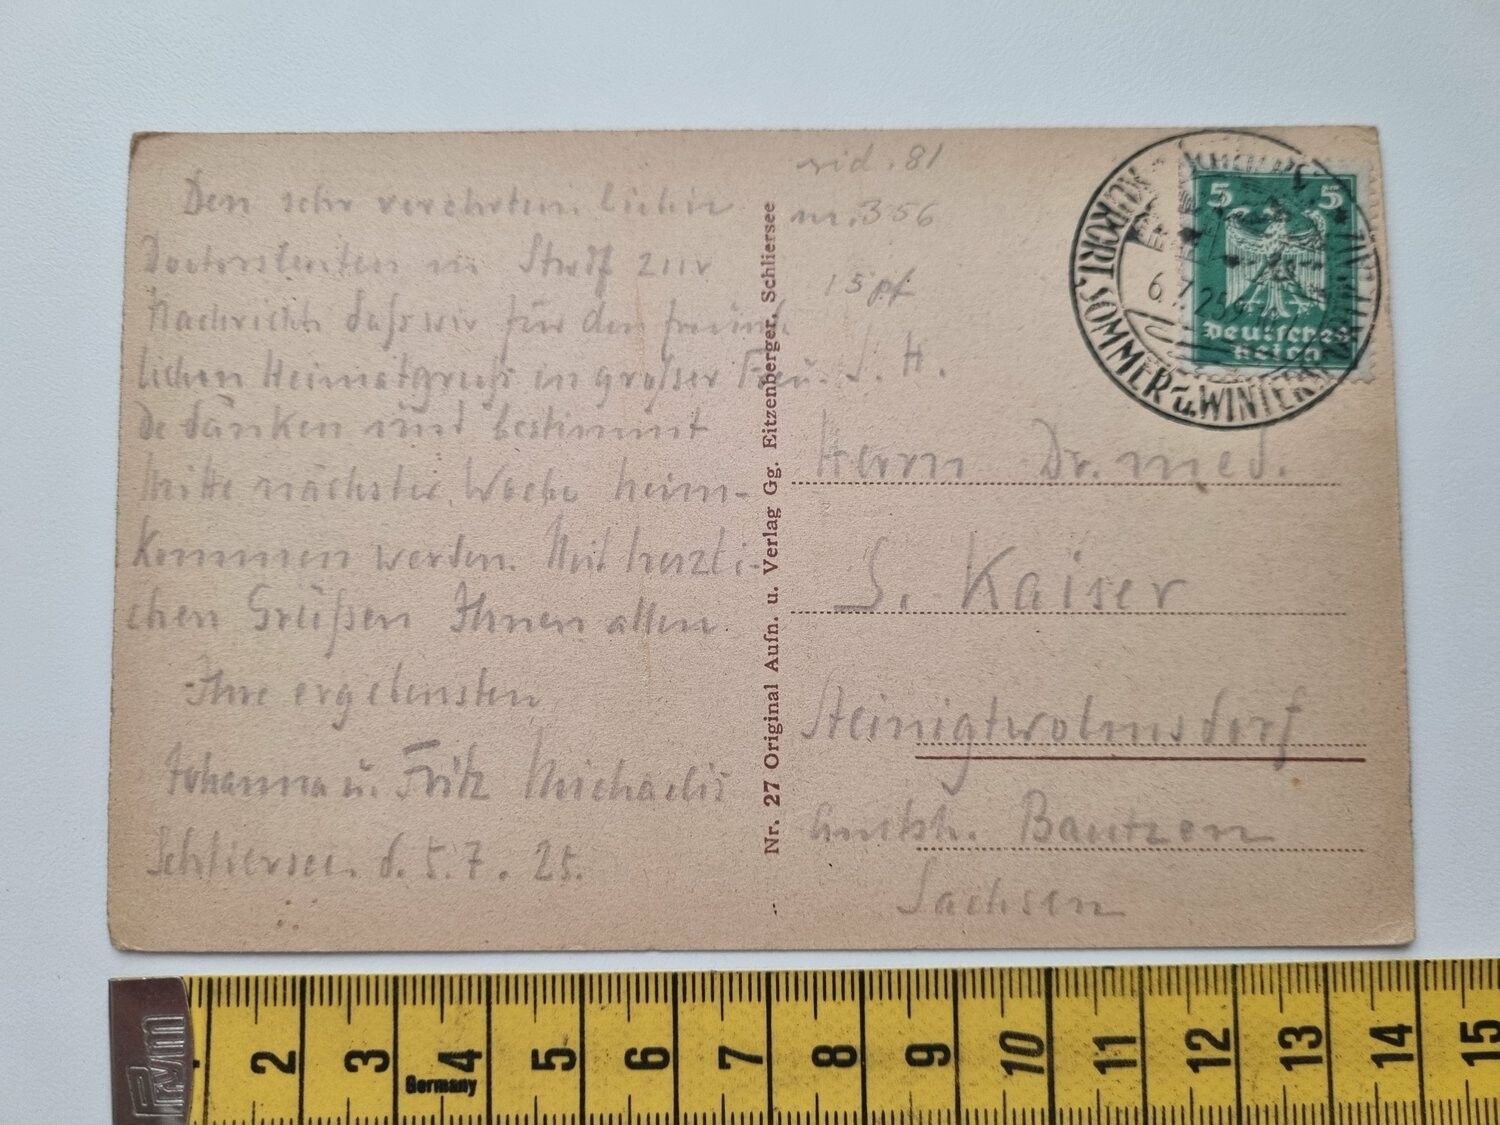 Den sehr verehrten lieben
Doctorsleuten in Stwdf zur
Nachricht, daß wir für den freund-
lichen Heimatgruß in großer Freu-
de danken und bestimmt
Mitte nächster Woche heim-
kommen werden. Mit herzli-
chen Grüßen Ihnen allen
Ihre ergebensten
Johanna u. Fritz Michaelis
Schliersee, d. 5.7.25.
Nr. 27 Original Aufn. u. Verlag Gg. Eitzenberger, Schliersee
nr. 356
15 pf
S. H.
Herrn Dr. med.
S. Kaiser
Steinigtwolmsdorf
Amtsh. Bautzen
Sachsen
5 5
Deutsches
Reich
6.7.25
LUFTKURORT, SOMMER u. WINTER
1 2 3 4 5 6 7 8 9 10 11 12 13 14 15
Germany